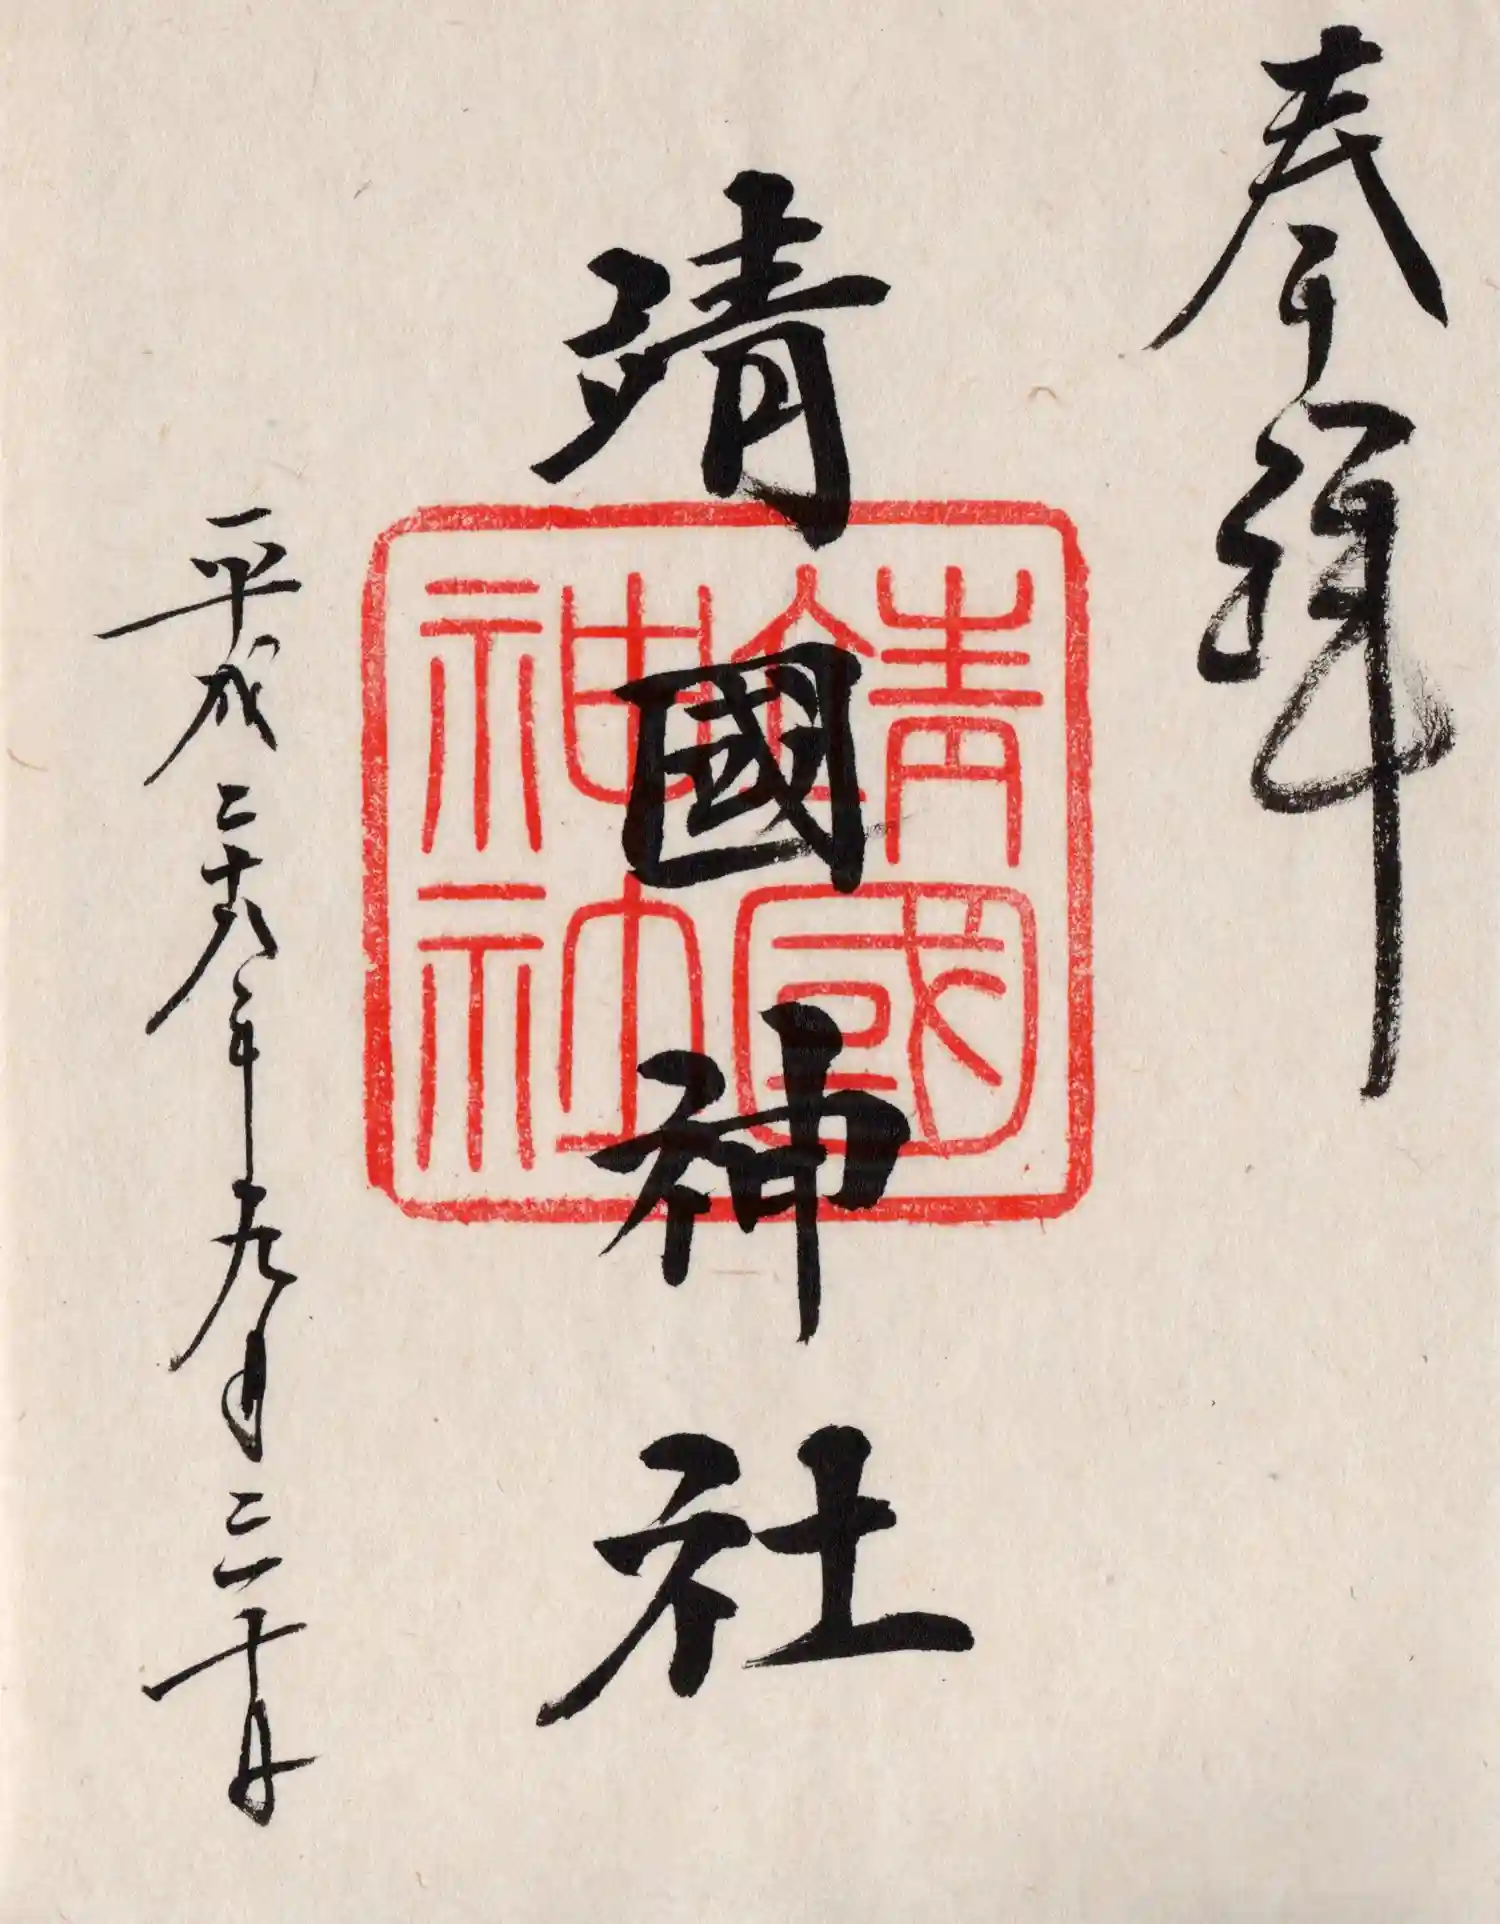 奉拝
靖國神社
靖國
神社
平成二十八年九月三十日